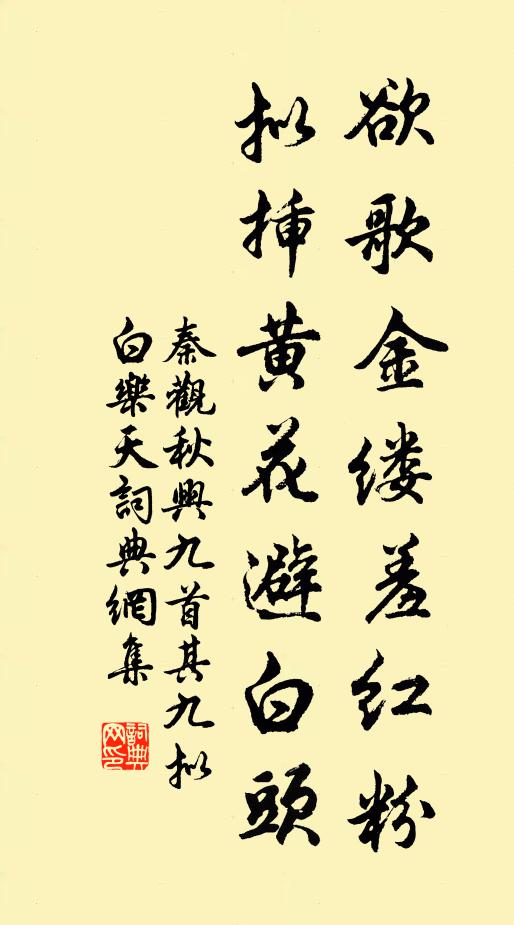 欲歌金缕羞红粉
拟插黄花避白頭
秦觀秋興九首其九拟
白樂天詞典網集
詞典网印